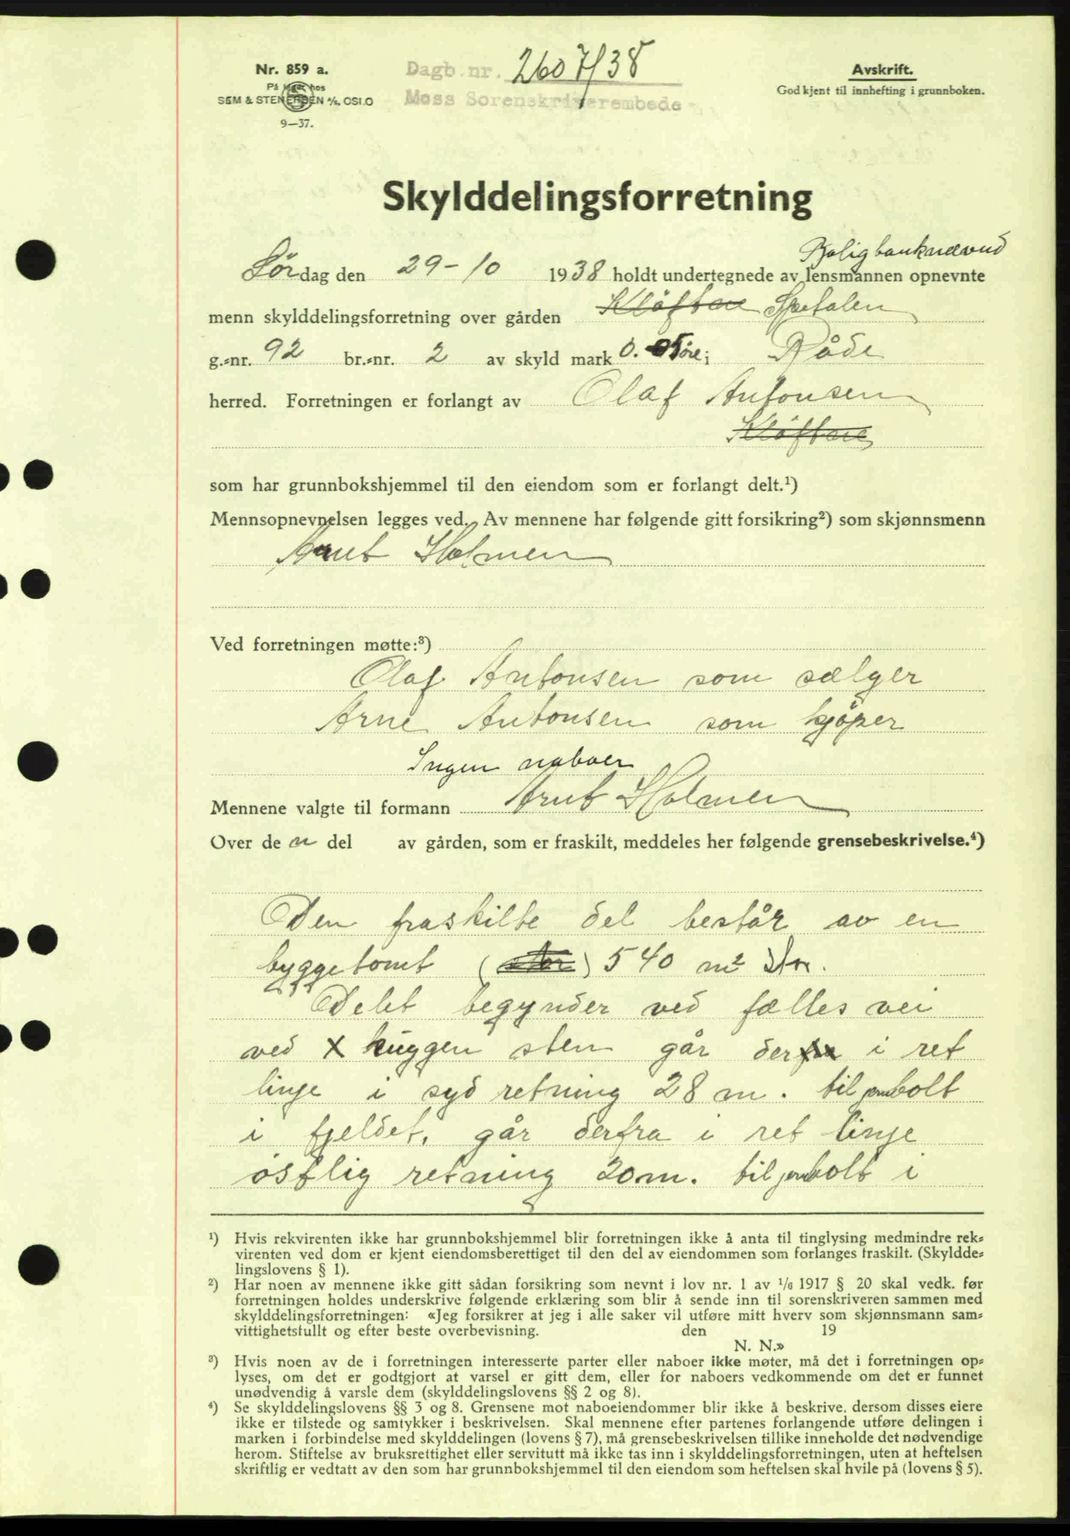 Nr. 859 a.
På lager hos
SEM & STENERSEN A/S, OSLO
9—37.
Dagb. nr. 2607/38
Moss Sorenskriverembede
Avskrift.
Godkjent til innhefting i grunnboken.
Skylddelingsforretning
Boligbanknævnd
Lördag den 29-10 1938 holdt undertegnede av lensmannen opnevnte
menn skylddelingsforretning over gården Kløftere Spetalen
g.-nr. 92 br.-nr. 2 av skyld mark 0. 05 øre i Råde
herred. Forretningen er forlangt av Olaf Antonsen
Kløftere
som har grunnbokshjemmel til den eiendom som er forlangt delt.¹)
Mennsopnevnelsen legges ved. Av mennene har følgende gitt forsikring²) som skjønnsmenn
Arnt Holmen
Ved forretningen møtte:³)
Olaf Antonsen som sælger
Arne Antonsen som kjøper
Ingen naboer
Mennene valgte til formann Arnt Holmen
Over den del av gården, som er fraskilt, meddeles her følgende grensebeskrivelse.⁴)
Den fraskilte del består av en
byggetomt (stor) 540 m² stor.
Delet begynder ved fælles vei
ved X huggen sten går derfra i ret
linje i syd retning 28 m. til jernbolt
i fjeldet, går derfra i ret linje
østlig retning 20 m. til jernbolt i
¹) Hvis rekvirenten ikke har grunnbokshjemmel blir forretningen ikke å anta til tinglysing medmindre rek-
virenten ved dom er kjent eiendomsberettiget til den del av eiendommen som forlanges fraskilt. (Skyldde-
lingslovens § 1).
²) Har noen av mennene ikke gitt sådan forsikring som nevnt i lov nr. 1 av ¹/₆ 1917 § 20 skal vedk. før
forretningen holdes underskrive følgende erklæring som blir å sende inn til sorenskriveren sammen med
skylddelingsforretningen: «Jeg forsikrer at jeg i alle saker vil utføre mitt hverv som skjønnsmann sam-
vittighetsfullt og efter beste overbevisning. den 19
N. N.»
³) Hvis noen av de i forretningen interesserte parter eller naboer ikke møter, må det i forretningen op-
lyses, om det er godtgjort at varsel er gitt dem, eller for naboers vedkommende om det er funnet
unødvendig å varsle dem (skylddelingslovens §§ 2 og 8).
⁴) Se skylddelingslovens §§ 3 og 8. Grensene mot naboeiendommer blir ikke å beskrive, dersom disses eiere
ikke er tilstede og samtykker i beskrivelsen. Skal mennene efter partenes forlangende utføre delingen i
marken i forbindelse med skylddelingen (lovens § 7), må grensebeskrivelsen tillike inneholde det nødvendige
herom. Stiftelse av bruksrettighet eller servitutt må ikke tas inn i skylddelingsforretningen, uten at heftelsen
skriftlig er vedtatt av den som har grunnbokshjemmel til den eiendom som heftelsen skal hvile på (lovens § 5).